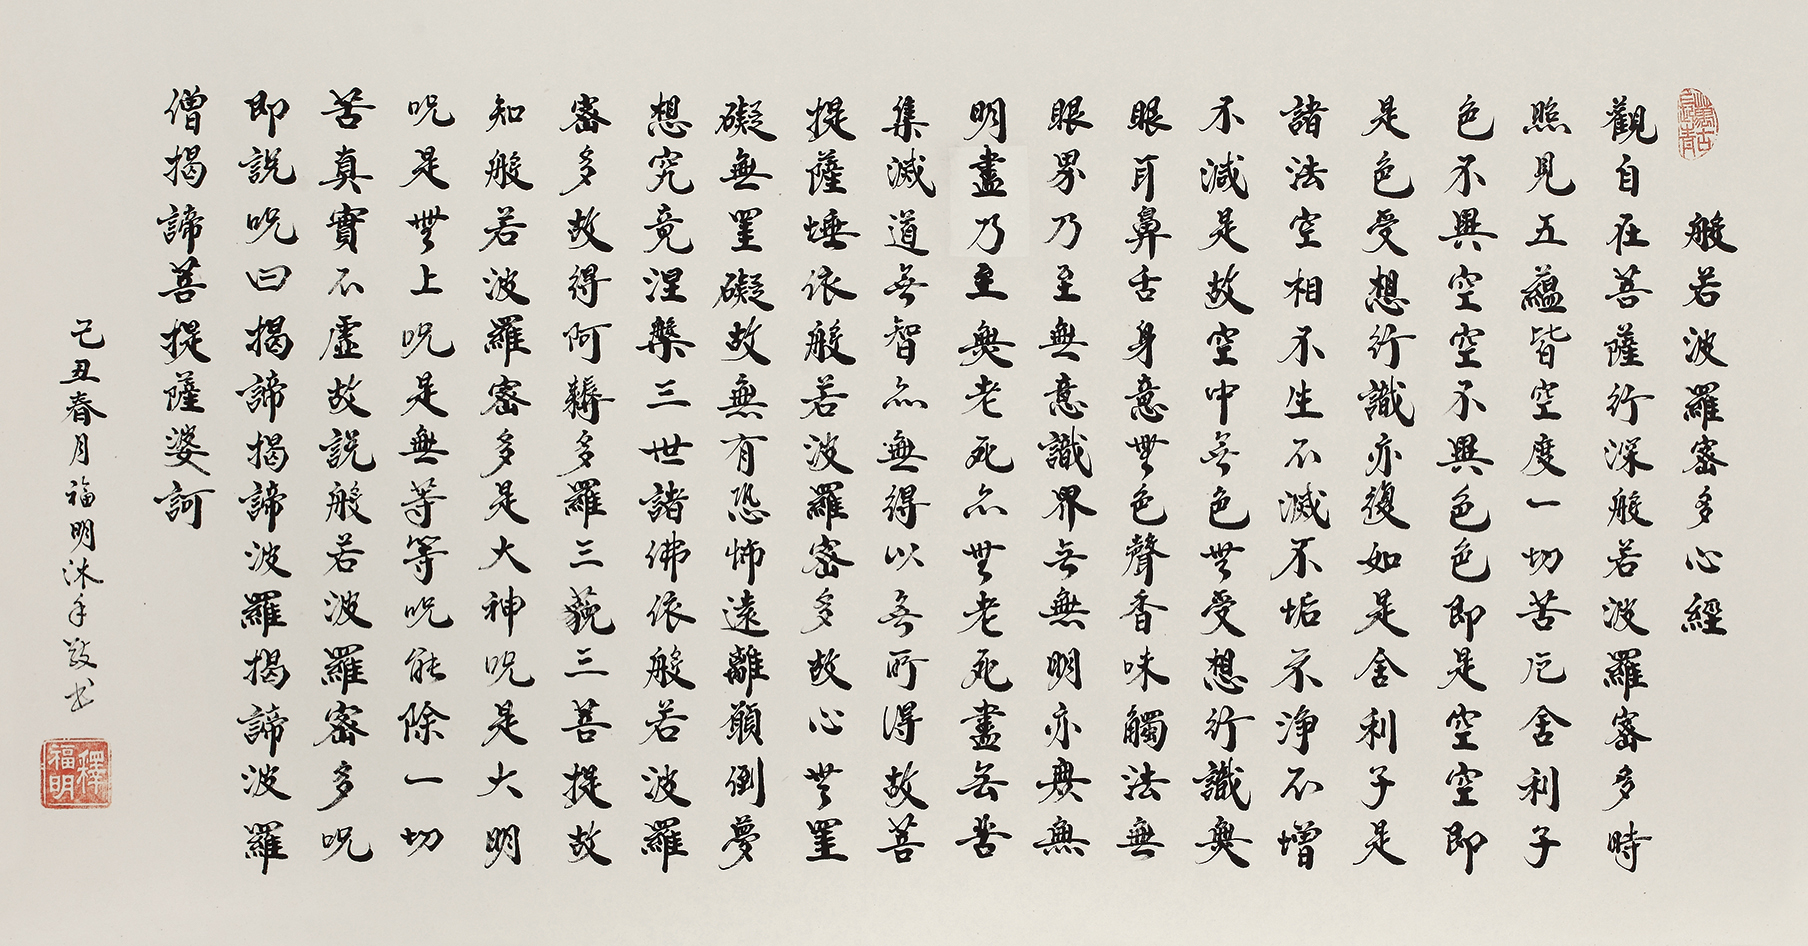 般若波羅密多心經
觀自在菩薩行深般若波羅密多時
照見五蘊皆空度一切苦厄舍利子
色不異空空不異色色即是空空即
是色受想行識亦復如是舍利子是
諸法空相不生不滅不垢不淨不增
不減是故空中無色無受想行識無
眼耳鼻舌身意無色聲香味觸法無
眼界乃至無意識界無無明亦無無
明盡乃至無老死亦無老死盡無苦
集滅道無智亦無得以無所得故菩
提薩埵依般若波羅密多故心無罣
礙無罣礙故無有恐怖遠離顛倒夢
想究竟涅槃三世諸佛依般若波羅
密多故得阿耨多羅三藐三菩提故
知般若波羅密多是大神呪是大明
呪是無上呪是無等等呪能除一切
苦真實不虛故說般若波羅密多呪
即說呪曰揭諦揭諦波羅揭諦波羅
僧揭諦菩提薩婆訶
己丑春月福明沐手敬书
釋福明